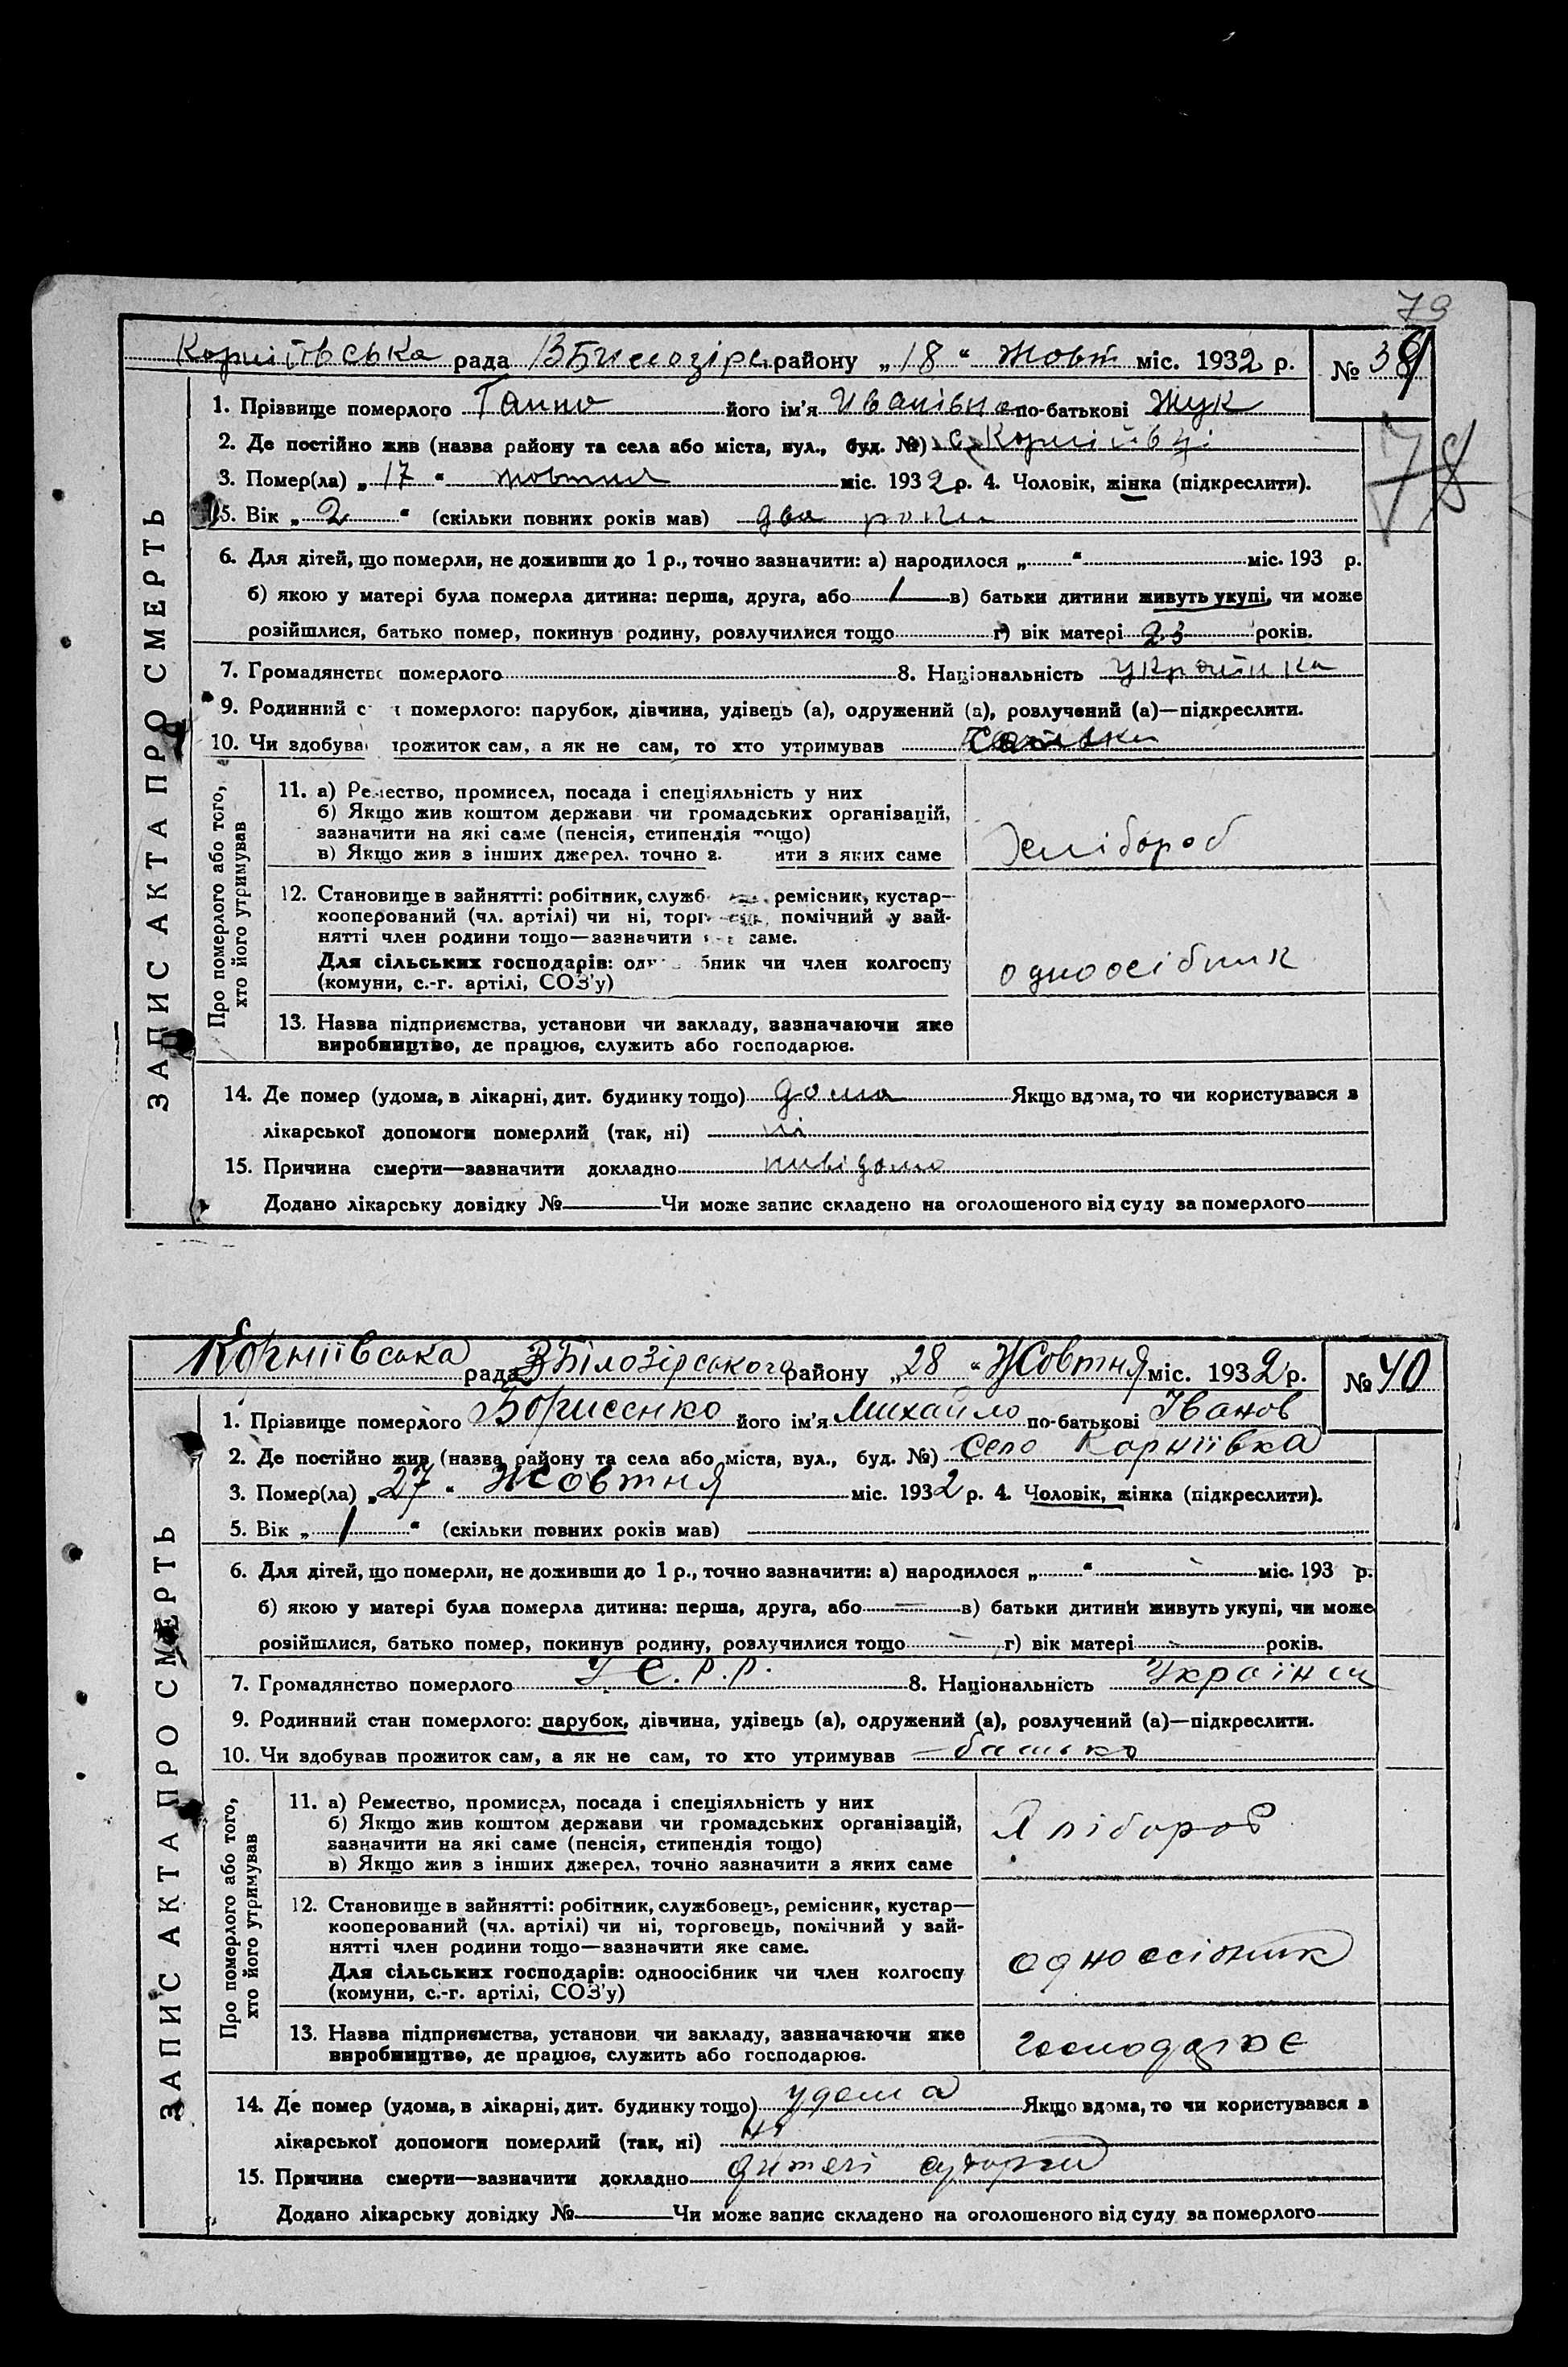 79
Корніївська рада В Білозірс. району „18“ Жовт міс. 1932 р. № 39
1. Прізвище померлого Ганно його ім'я Иванівна по-батькові Жук
2. Де постійно жив (назва району та села або міста, вул., буд. №) с. Корніївці
78
3. Помер(ла) „17“ жовтня міс. 1932 р. 4. Чоловік, жінка (підкреслити).
5. Вік „2“ (скільки повних років мав) два роки
6. Для дітей, що померли, не доживши до 1 р., точно зазначити: а) народилося „ “ міс. 193 р.
б) якою у матері була померла дитина: перша, друга, або в) батьки дитини живуть укупі, чи може
розійшлися, батько помер, покинув родину, розлучилися тощо г) вік матері 23 років.
7. Громадянство померлого 8. Національність Українка
9. Родинний с померлого: парубок, дівчина, удівець (а), одружений (а), розлучений (а)—підкреслити.
10. Чи здобува прожиток сам, а як не сам, то хто утримував
ЗАПИС АКТА ПРО СМЕРТЬ
Про померлого або того,
хто його утримував
11. а) Ремество, промисел, посада і спеціяльність у них
б) Якщо жив коштом держави чи громадських організацій,
зазначити на які саме (пенсія, стипендія тощо)
в) Якщо жив з інших джерел, точно з ити з яких саме
хлібороб
12. Становище в зайнятті: робітник, служб ремісник, кустар—
кооперований (чл. артілі) чи ні, торг помічний у зай-
нятті член родини тощо—зазначити саме.
Для сільських господарів: од бник чи член колгоспу
(комуни, с.-г. артілі, СОЗ'у)
одноосібник
13. Назва підприємства, установи чи закладу, зазначаючи яке
виробництво, де працює, служить або господарює.
14. Де помер (удома, в лікарні, дит. будинку тощо) дома Якщо вдома, то чи користувався з
лікарської допомоги померлий (так, ні) ні
15. Причина смерти—зазначити докладно нивідомо
Додано лікарську довідку № Чи може запис складено на оголошеного від суду за померлого
Корніївська рада В Білозірського району „28“ Жовтня міс. 1932 р. № 40
1. Прізвище померлого Борисенко його ім'я Михайло по-батькові Іванов
2. Де постійно жив (назва району та села або міста, вул., буд. №) Село Корніївка
3. Помер(ла) „27“ Жовтня міс. 1932 р. 4. Чоловік, жінка (підкреслити).
5. Вік „1“ (скільки повних років мав)
6. Для дітей, що померли, не доживши до 1 р., точно зазначити: а) народилося „ “ міс. 193 р.
б) якою у матері була померла дитина: перша, друга, або в) батьки дитини живуть укупі, чи може
розійшлися, батько помер, покинув родину, розлучилися тощо г) вік матері років.
7. Громадянство померлого У.С.Р.Р. 8. Національність Українец
9. Родинний стан померлого: парубок, дівчина, удівець (а), одружений (а), розлучений (а)—підкреслити.
10. Чи здобував прожиток сам, а як не сам, то хто утримував батько
ЗАПИС АКТА ПРО СМЕРТЬ
Про померлого або того,
хто його утримував
11. а) Ремество, промисел, посада і спеціяльність у них
б) Якщо жив коштом держави чи громадських організацій,
зазначити на які саме (пенсія, стипендія тощо)
в) Якщо жив з інших джерел, точно зазначити з яких саме
Хлібороб
12. Становище в зайнятті: робітник, службовець, ремісник, кустар—
кооперований (чл. артілі) чи ні, торговець, помічний у зай-
нятті член родини тощо—зазначити яке саме.
Для сільських господарів: одноосібник чи член колгоспу
(комуни, с.-г. артілі, СОЗ'у)
одноосібник
13. Назва підприємства, установи чи закладу, зазначаючи яке
виробництво, де працює, служить або господарює.
господарює
14. Де помер (удома, в лікарні, дит. будинку тощо) удома Якщо вдома, то чи користувався з
лікарської допомоги померлий (так, ні) ні
15. Причина смерти—зазначити докладно дитячі судорги
Додано лікарську довідку № Чи може запис складено на оголошеного від суду за померлого